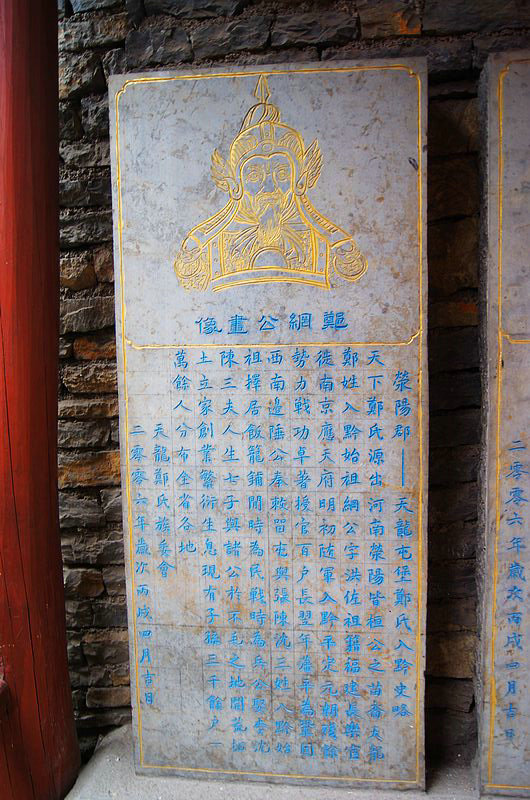 鄭綱公畫像
滎陽郡——天龍屯堡鄭氏入黔史略
天下鄭氏源出河南滎陽皆桓公之苗裔天龍
鄭姓入黔始祖綱公字洪佐祖籍福建長樂宦
徙南京應天府明初随軍入黔平定元朝殘餘
勢力戰功卓著授官百户長翌年肅平為鞏固
西南邊陲公奉敕留屯與張陳沈三姓入黔始
祖擇居飯籠鋪閒時為民戰時為兵公娶妻沈
陳三夫人生七子與諸公於不毛之地開荒拓
土立家創業繁衍生息現有子孫三千餘户一
萬餘人分布全省各地
天龍鄭氏族委會
二零零六年歲次丙戌四月吉日
二零零六年歲次丙戌四月吉日